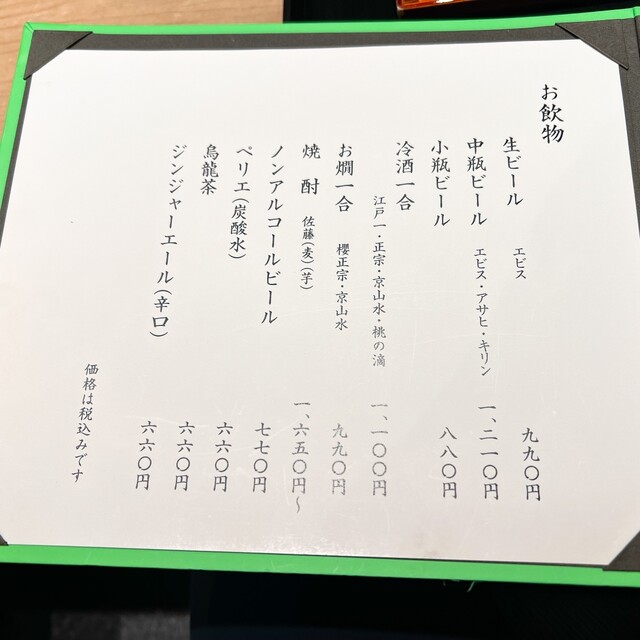 お飲物
生ビール エビス 九九〇円
中瓶ビール エビス・アサヒ・キリン 一、二一〇円
小瓶ビール 八八〇円
冷酒一合
江戸一・正宗・京山水・桃の滴 一、一〇〇円
お燗一合 櫻正宗・京山水 九九〇円
焼酎 佐藤(麦)(芋) 一、六五〇円〜
ノンアルコールビール 七七〇円
ペリエ(炭酸水) 六六〇円
烏龍茶 六六〇円
ジンジャーエール(辛口) 六六〇円
価格は税込みです